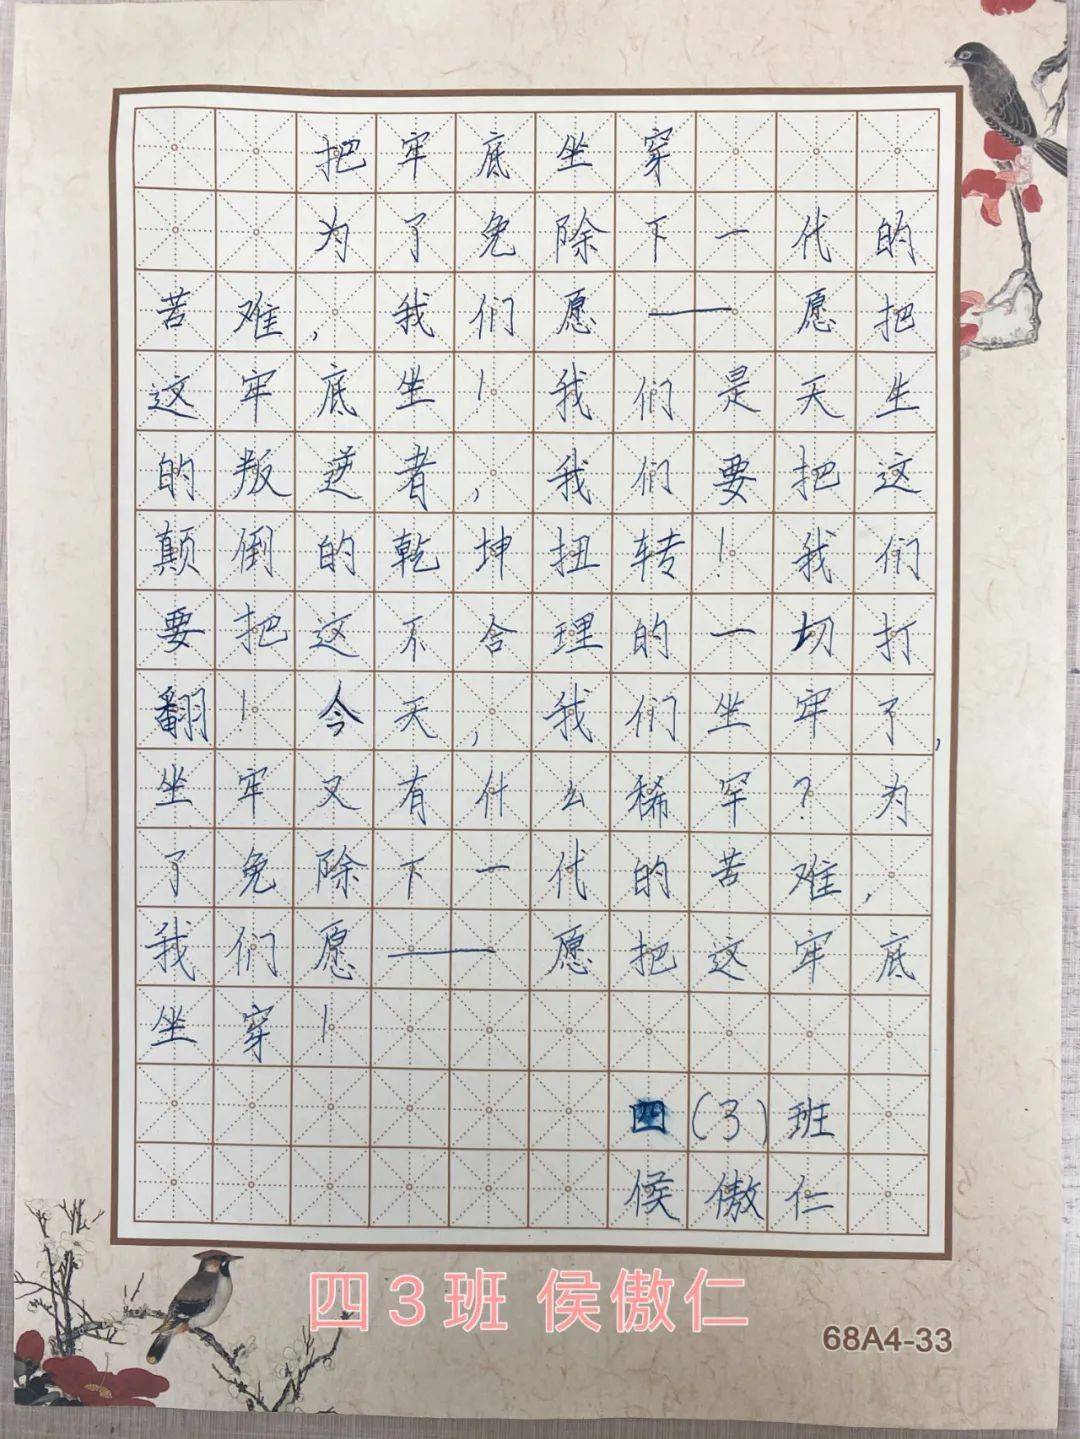 把牢底坐穿
为了免除下一代的
苦难，我们愿——愿把
这牢底坐！我们是天生
的叛逆者，我们要把这
颠倒的乾坤扭转！我们
要把这不合理的一切打
翻！今天，我们坐牢了，
坐牢又有什么稀罕？为
了免除下一代的苦难，
我们愿——愿把这牢底
坐穿！
四(3)班
侯傲仁
四3班 侯傲仁
68A4-33